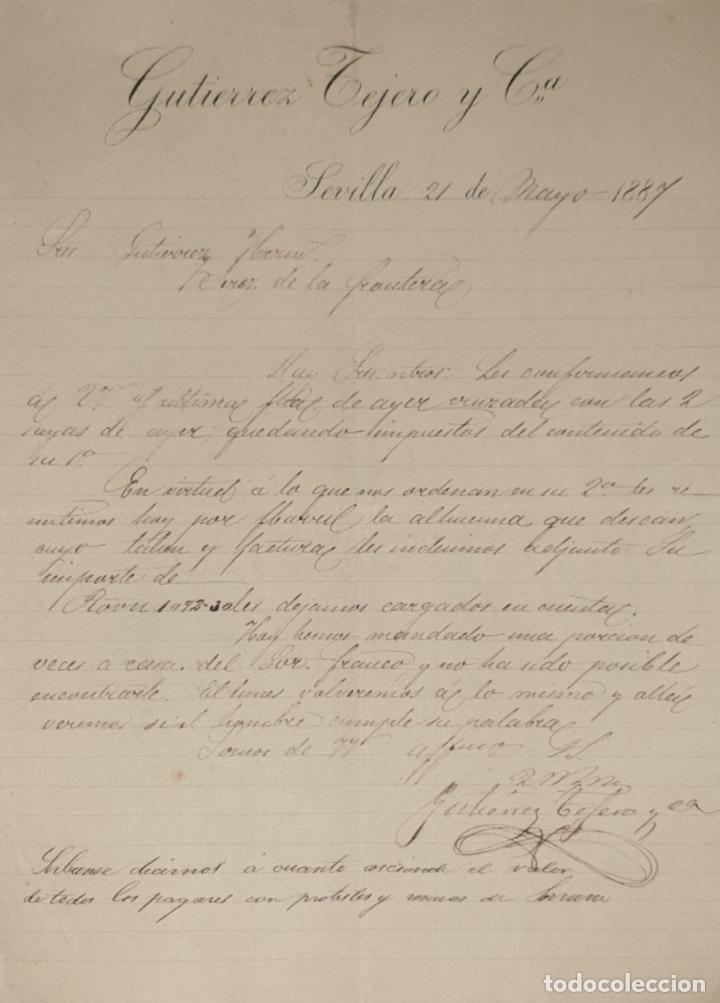 Gutierrez Tejero y Cia
Sevilla 21 de Mayo 1887
Sres. Gutiérrez Herms.
Xerez de la frontera
Muy Sres. ntros: Les confirmamos
de ayer cruzada con las 2
suyas de ayer; quedando impuestos del contenido de
su 1ª
En virtud á lo que nos ordenan en su 2ª les re-
mitimos hoy por la alhucema que desean
cuyo talon y factura les incluimos adjunto Su
importe de
Rvon 1092-30 les dejamos cargados en cuenta.
Hoy hemos mandado una porcion de
veces á casa del Sor. franco y no ha sido posible
encontrarle. El lunes volveremos á lo mismo y allá
veremos si el hombre cumple su palabra
Somos de Vs affmos SS.
Gutiérrez Tejero y Ca
Sirvanse decirnos á cuanto asciende el valor
de todos los pagares con protestos y
todocoleccion